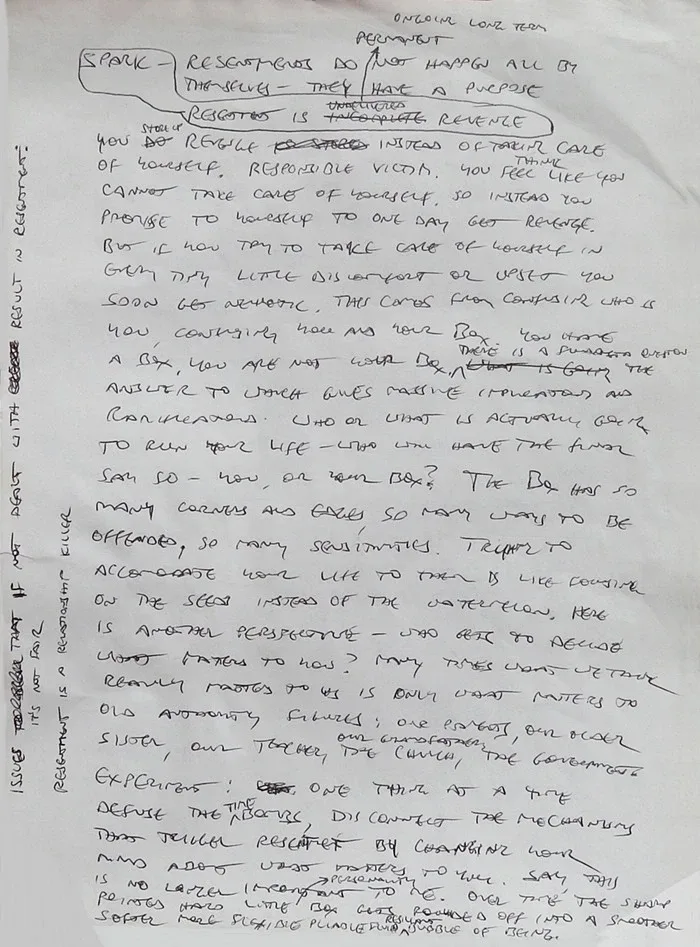 ONGOING LONG TERM
PERMANENT
SPARK - RESENTMENTS DO NOT HAPPEN ALL BY
THEMSELVES - THEY HAVE A PURPOSE
UNDELIVERED
RESENTMENT IS INCOMPLETE REVENGE
STORE UP
YOU DO REVENGE INSTEAD OF TAKING CARE
OF YOURSELF. RESPONSIBLE VICTIM. YOU FEEL THINK LIKE YOU
CANNOT TAKE CARE OF YOURSELF, SO INSTEAD YOU
PROMISE TO YOURSELF TO ONE DAY GET REVENGE.
BUT IF YOU TRY TO TAKE CARE OF YOURSELF IN
EVERY TINY LITTLE DISCOMFORT OR UPSET YOU
SOON GET NEUROTIC. THIS COMES FROM CONFUSING WHO IS
YOU, CONFUSING YOU AND YOUR BOX. YOU HAVE
A BOX, YOU ARE NOT YOUR BOX, THERE IS A QUESTION WHAT IS GOING THE
ANSWER TO WHICH GIVES MASSIVE IMPLICATIONS AND
RAMIFICATIONS. WHO OR WHAT IS ACTUALLY GOING
TO RUN YOUR LIFE - WHO WILL HAVE THE FINAL
SAY SO - YOU, OR YOUR BOX? THE BOX HAS SO
MANY CORNERS AND EDGES, SO MANY WAYS TO BE
OFFENDED, SO MANY SENSITIVITIES. TRYING TO
ACCOMODATE YOUR LIFE TO THEM IS LIKE FOCUSING
ON THE SEEDS INSTEAD OF THE WATERMELON. HERE
IS ANOTHER PERSPECTIVE - WHO GETS TO DECIDE
WHAT MATTERS TO YOU? MANY TIMES WHAT WE THINK
REALLY MATTERS TO US IS ONLY WHAT MATTERS TO
OLD AUTHORITY FIGURES; OUR PARENTS, OUR OLDER
SISTER, OUR TEACHER, OUR GRANDFATHER, THE CHURCH, THE GOVERNMENT.
EXPERIMENT: ONE THING AT A TIME
DEFUSE THE TIME BOMBS, DISCONNECT THE MECHANISMS
THAT TRIGGER RESENTMENT BY CHANGING YOUR
MIND ABOUT WHAT MATTERS TO YOU. SAY, THIS
IS NO LONGER IMPORTANT TO ME. OVER TIME THE SHARP
PERSONALITY
POINTED HARD LITTLE BOX GETS ROUNDED OFF INTO A SMOOTHER
SOFTER MORE FLEXIBLE PLIABLE FLUID RESILIENT BUBBLE OF BEING.
ISSUES THAT IF NOT DEALT WITH RESULT IN RESENTMENT:
IT'S NOT FAIR
RESENTMENT IS A RELATIONSHIP KILLER